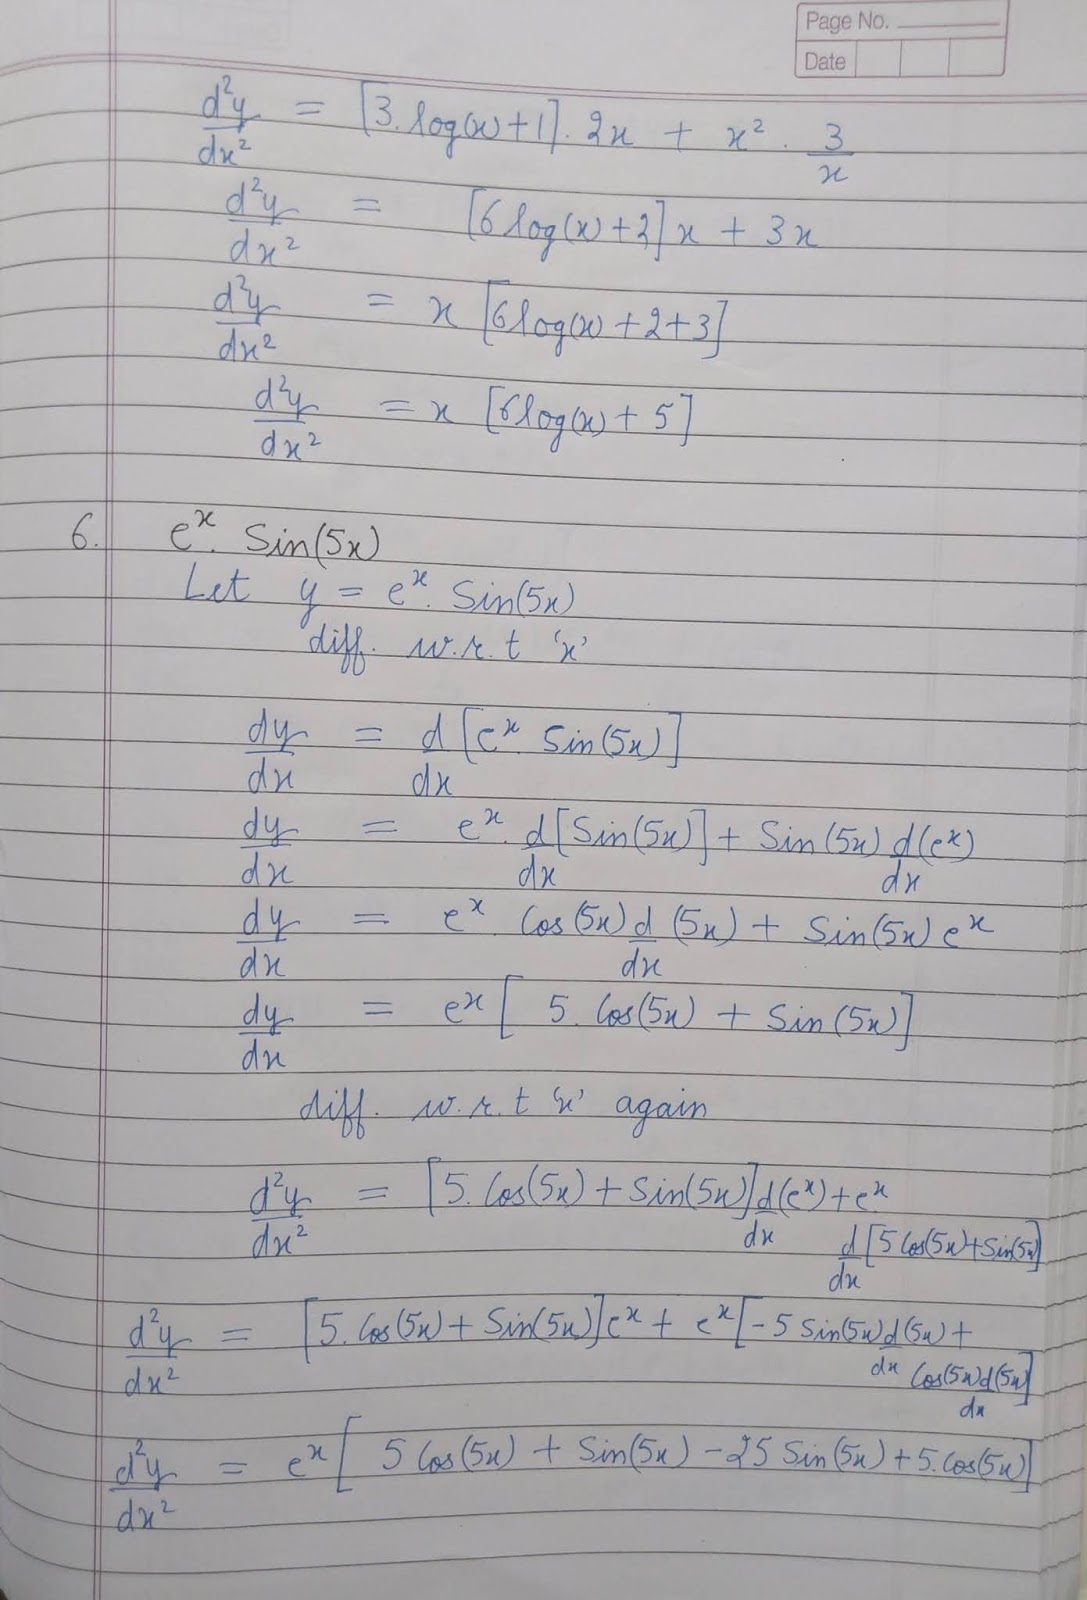 Page No.
Date
d²y/dx² = [3.log(x)+1].2x + x² . 3/x
d²y/dx² = [6log(x)+2]x + 3x
d²y/dx² = x [6log(x)+2+3]
d²y/dx² = x [6log(x)+5]
6. eˣ. Sin(5x)
Let y = eˣ. Sin(5x)
diff. w.r.t 'x'
dy/dx = d/dx [eˣ. Sin(5x)]
dy/dx = eˣ. d/dx [Sin(5x)] + Sin(5x) d/dx (eˣ)
dy/dx = eˣ Cos(5x) d/dx (5x) + Sin(5x) eˣ
dy/dx = eˣ [ 5. Cos(5x) + Sin(5x)]
diff. w.r.t 'x' again
d²y/dx² = [5. Cos(5x) + Sin(5x)] d/dx (eˣ) + eˣ
d/dx [5 Cos(5x)+Sin(5x)]
d²y/dx² = [5. Cos(5x) + Sin(5x)]eˣ + eˣ[-5 Sin(5x) d/dx (5x) +
Cos(5x) d/dx (5x)]
d²y/dx² = eˣ [ 5 Cos(5x) + Sin(5x) - 25 Sin(5x) + 5. Cos(5x)]